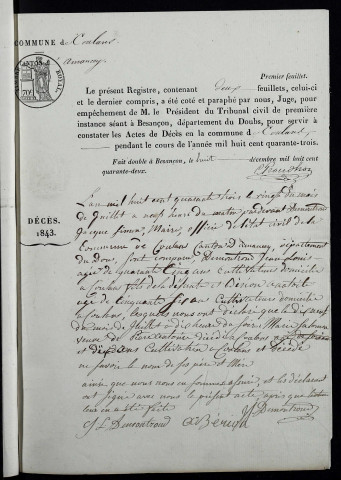 COMMUNE de Coulans
d'amancey
Premier feuillet.
Le présent Registre, contenant deux feuillets, celui-ci
et le dernier compris, a été coté et paraphé par nous, Juge, pour
empêchement de M. le Président du Tribunal civil de première
instance séant à Besançon, département du Doubs, pour servir à
constater les Actes de Décès en la commune de Coulans
pendant le cours de l'année mil huit cent quarante-trois.
Fait double à Besançon, le huit décembre mil huit cent
quarante-deux.
DÉCÈS.
1843.
L'an mil huit cent quarante trois le vingt du mois
de juillet a neuf heures du matin pardevant
Maire, officier de l'état civil de la
Commune de Coulans Canton d'amancey, département
du Doubs, sont comparus Demontrond Jean Louis
agé de quarante cinq ans Cultivateur domicilié
a Coulans fils de la défunte et
agé de cinquante six ans Cultivateur domicilié
a Coulans, lesquels nous ont déclaré que le dix neuf
du mois de juillet a dix heures du soir, Marie
veuve de
Cultivatrice Coulans est décédé
le nom de ses père et Mère
ainsi que nous nous en sommes assuré, et les déclarants
ont signé avec nous le présent acte après que lecture
leur en a été faite
J L Demontrond Demontrond